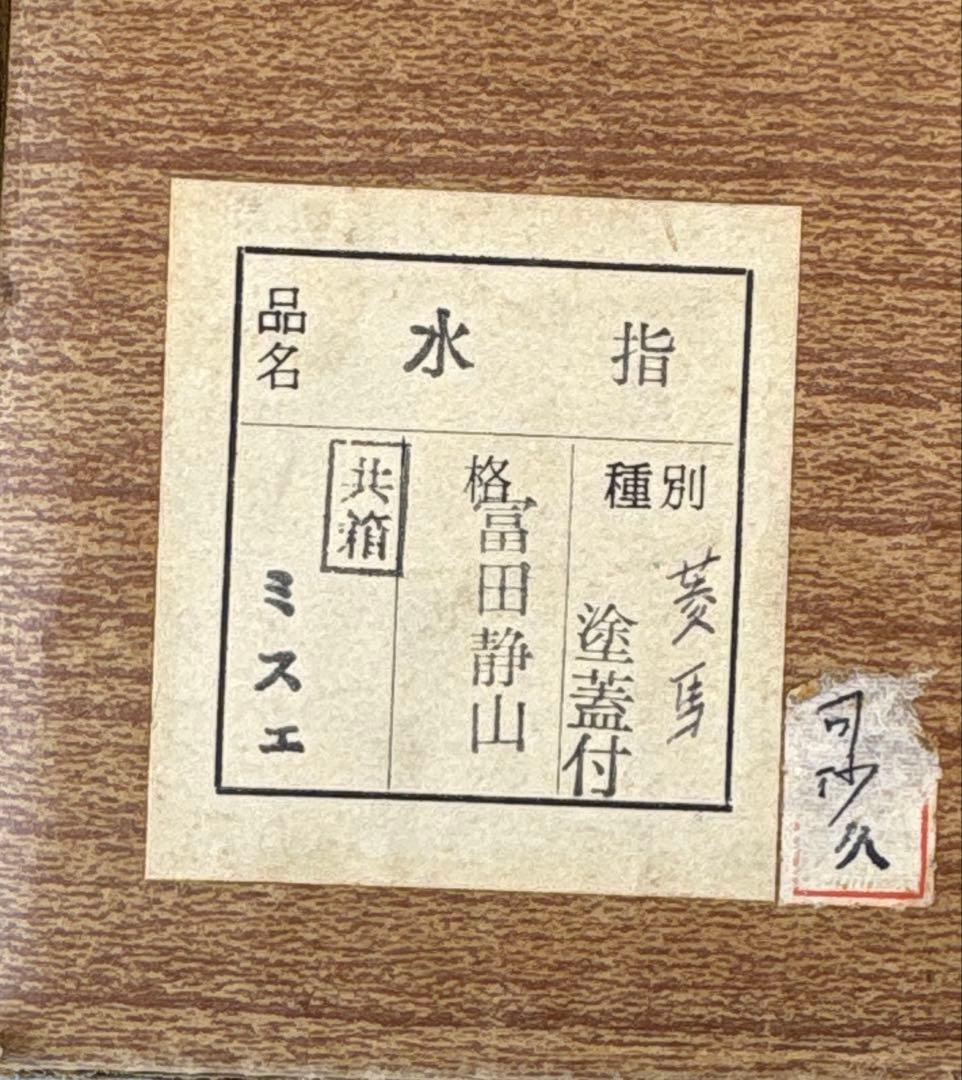 品名
水指
種別
菱馬
塗蓋付
格
冨田静山
共箱
ミスエ